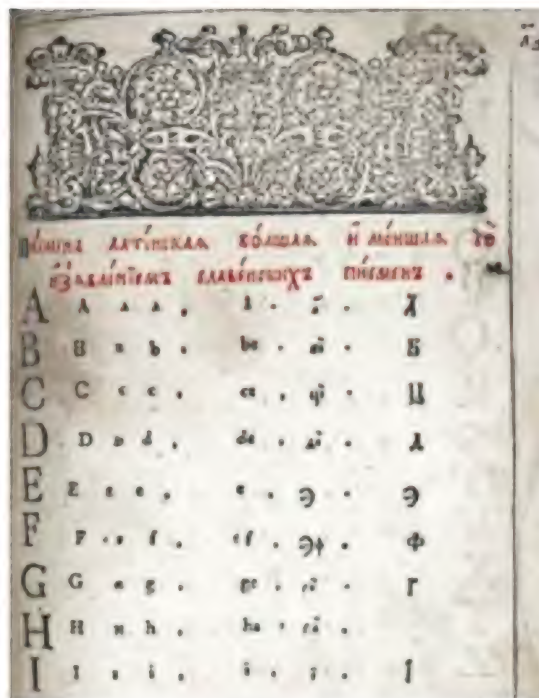 Пи́смена лати́нскаѧ бо́лшаѧ и҆ ме́ншаѧ
славе́нскихъ пи́сменъ .
A A A a . a . а҆ . А
B B B b . be . бе . Б
C C c c . ce . це . Ц
D D D d . de . де . Д
E E E e . e . э . Э
F F F f . ef . Эф . Ф
G G G g . ge . ге . Г
H H H h . ha . га .
I I I i . i . і . І